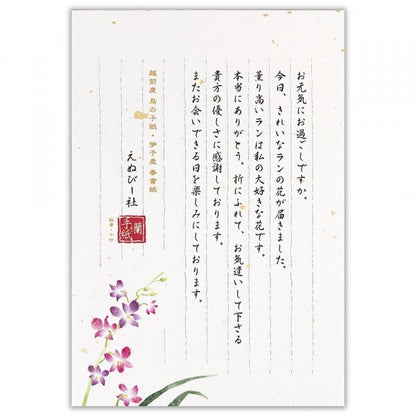 お元気にお過ごしですか。
今日、きれいなランの花が届きました。
薫り高いランは私の大好きな花です。
本当にありがとう。折にふれて、お気遣いして下さる
貴方の優しさに感謝しております。
またお会いできる日を楽しみにしております。
越前産 鳥の子紙・伊予産 奉書紙
えぬびー社
蘭
手紙